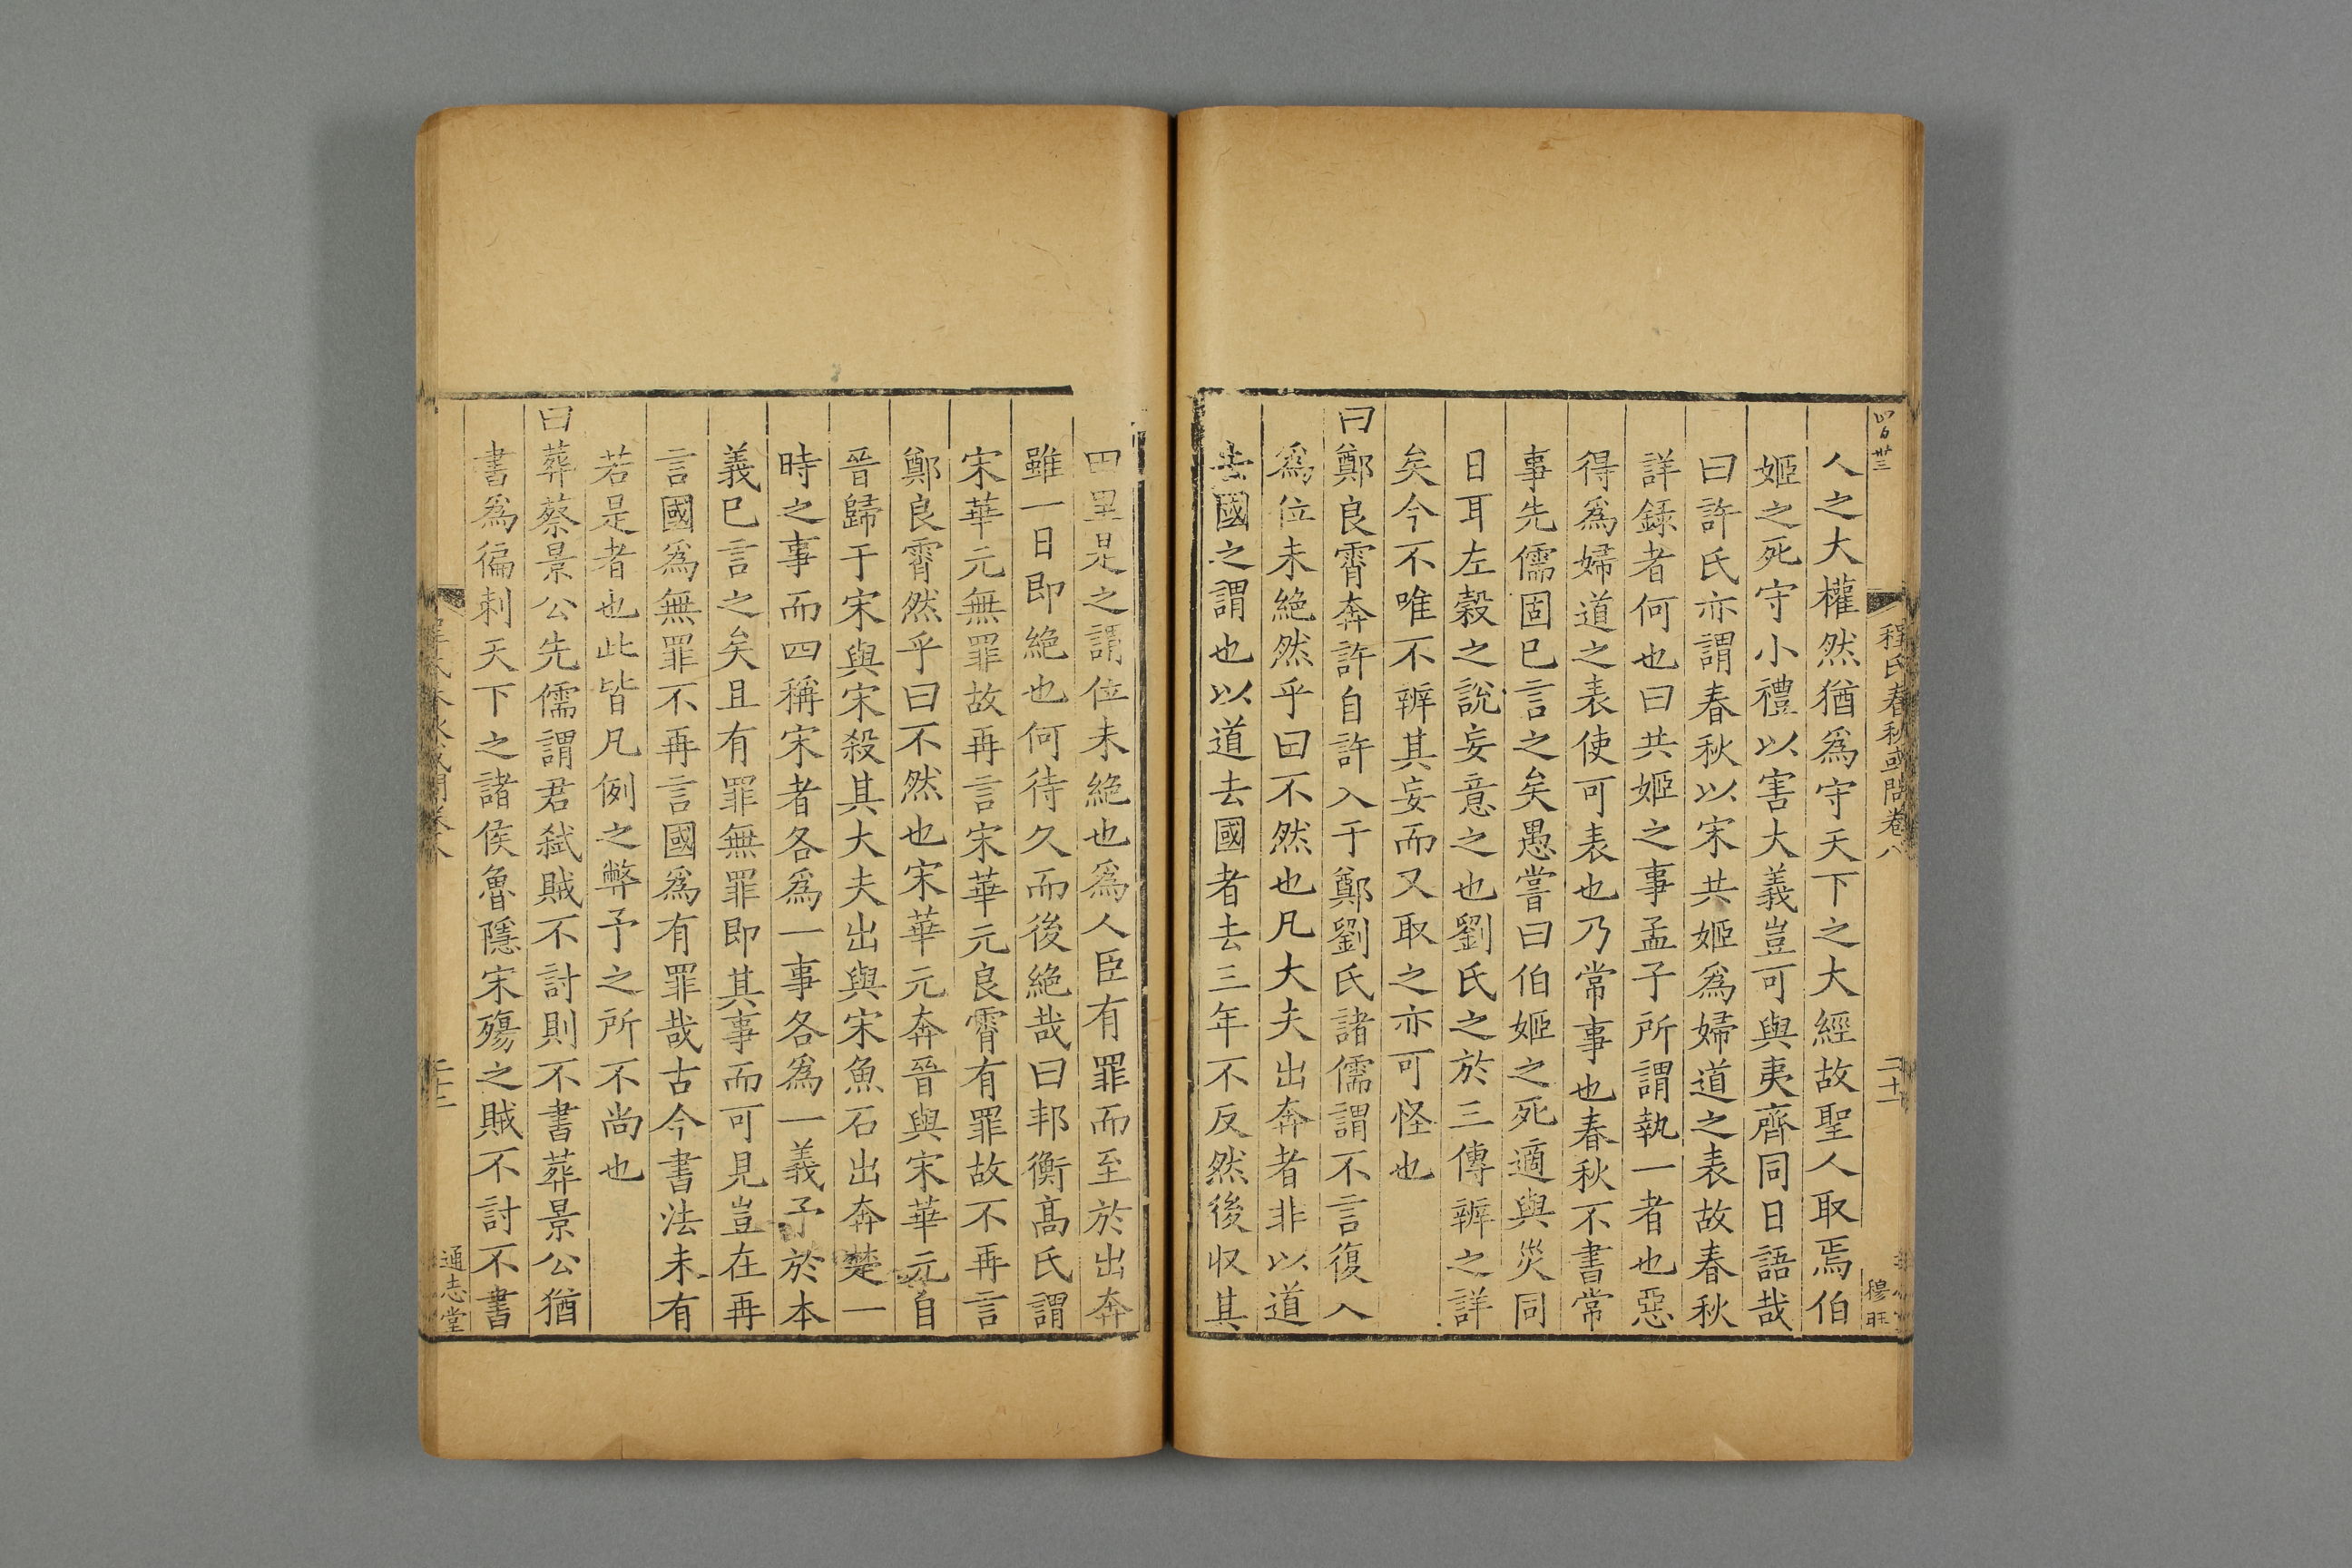 程氏春秋或問卷八
二十一
穆旺
人之大權然猶爲守天下之大經故聖人取焉伯
姬之死守小禮以害大義豈可與夷齊同日語哉
曰許氏亦謂春秋以宋共姬爲婦道之表故春秋
詳録者何也曰共姬之事孟子所謂執一者也惡
得爲婦道之表使可表也乃常事也春秋不書常
事先儒固已言之矣愚嘗曰伯姬之死適與災同
日耳左穀之說妄意之也劉氏之於三傳辨之詳
矣今不唯不辨其妄而又取之亦可怪也
曰鄭良霄奔許自許入于鄭劉氏諸儒謂不言復入
爲位未絶然乎曰不然也凡大夫出奔者非以道
去國之謂也以道去國者去三年不反然後收其
田里是之謂位未絶也爲人臣有罪而至於出奔
雖一日即絶也何待久而後絶哉曰邦衡髙氏謂
宋華元無罪故再言宋華元良霄有罪故不再言
鄭良霄然乎曰不然也宋華元奔晉與宋華元自
晉歸于宋與宋殺其大夫出與宋魚石出奔楚一
時之事而四稱宋者各爲一事各爲一義予於本
義已言之矣且有罪無罪即其事而可見豈在再
言國爲無罪不再言國爲有罪哉古今書法未有
若是者也此皆凡例之弊予之所不尚也
曰葬蔡景公先儒謂君弒賊不討則不書葬景公猶
書爲徧刺天下之諸侯魯隱宋殤之賊不討不書
通志堂